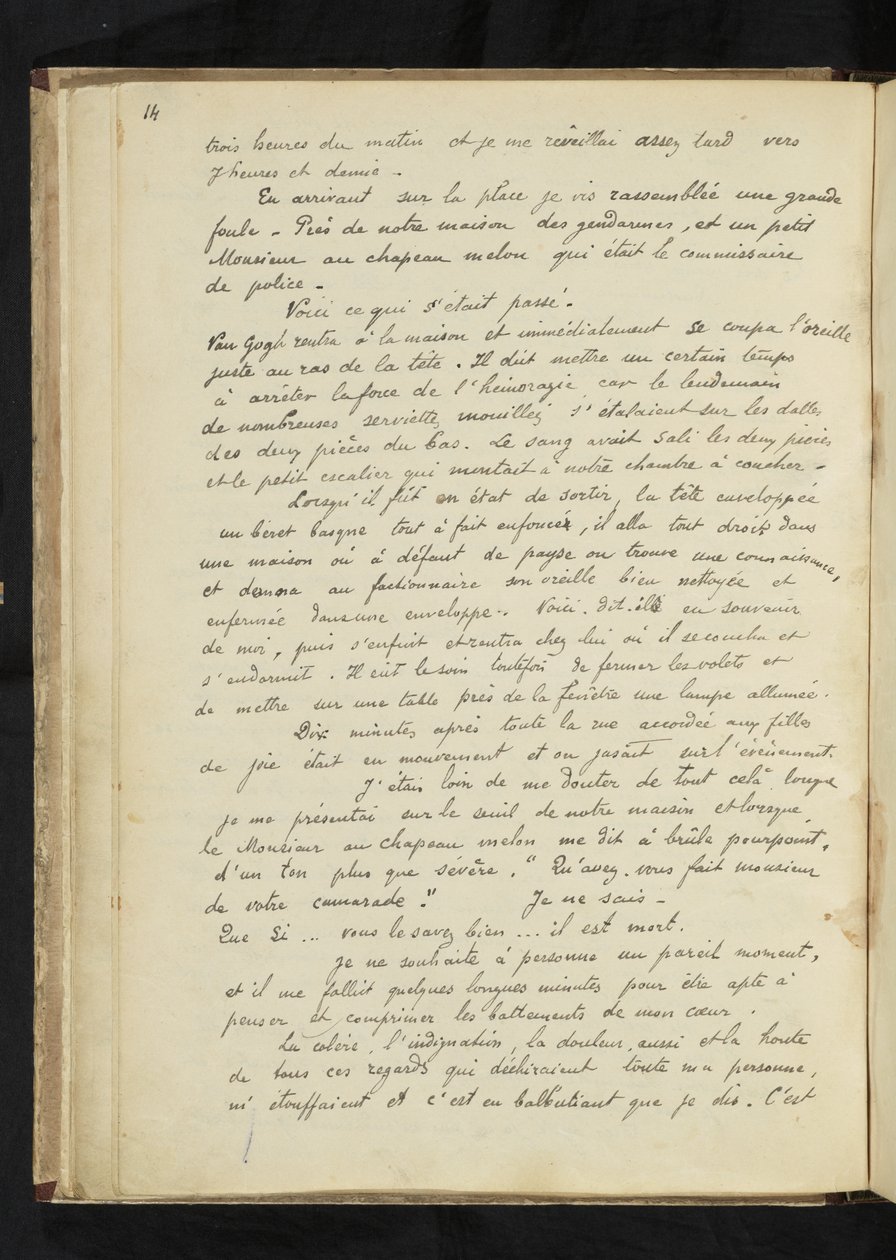 14
trois heures du matin et je me réveillai assez tard vers
7 heures et demie -
En arrivant sur la place je vis rassemblée une grande
foule - Près de notre maison des gendarmes, et un petit
Monsieur au chapeau melon qui était le commissaire
de police -
Voici ce qui s'était passé.
Van Gogh rentra à la maison et immédiatement se coupa l'oreille
juste au ras de la tête. Il dût mettre un certain temps
à arrêter la force de l'hémoragie car le lendemain
de nombreuses serviettes mouillées s'étalaient sur les dalles
des deux pièces du bas. Le sang avait sali les deux pièces
et le petit escalier qui montait à notre chambre à coucher -
Lorsqu'il fût en état de sortir, la tête enveloppée
un béret basque tout à fait enfoncé, il alla tout droit dans
une maison où à défaut de payse on trouve une connaissance,
et donna au factionnaire son oreille bien nettoyée et
enfermée dans une enveloppe.. Voici. dit-il en souvenir
de moi, puis s'enfuit et rentra chez lui où il se coucha et
s'endormit. Il eût le soin toutefois de fermer les volets et
de mettre sur une table près de la fenêtre une lampe allumée.
Dix minutes après toute la rue accordée aux filles
de joie était en mouvement et on jasait sur l'évènement.
J'étais loin de me douter de tout celà lorsque
je me présentai sur le seuil de notre maison et lorsque
le Monsieur au chapeau melon me dit à brûle pourpoint,
d'un ton plus que sévère. "Qu'avez-vous fait monsieur
de votre camarade." Je ne sais -
Que si ... vous le savez bien ... il est mort.
Je ne souhaite à personne un pareil moment,
et il me fallut quelques longues minutes pour être apte à
penser et comprimer les battements de mon cœur.
La colère, l'indignation, la douleur, aussi et la honte
de tous ces regards qui déchiraient toute ma personne,
m'étouffaient et c'est en balbutiant que je dis. C'est